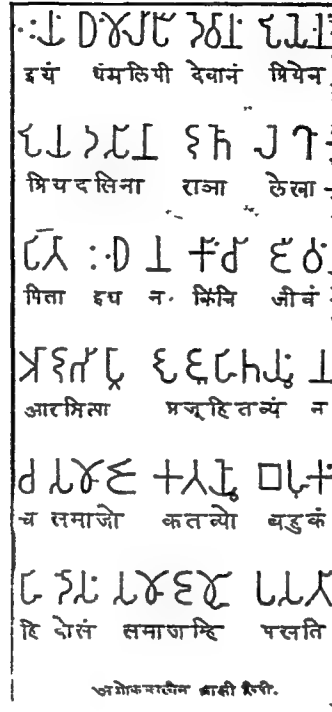 𑀇𑀬𑀁 𑀥𑀁𑀫𑀮𑀺𑀧𑀻 𑀤𑁂𑀯𑀸𑀦𑀁 𑀧𑁆𑀭𑀺𑀬𑁂𑀦
इयं धंमलिपी देवानं प्रियेन
𑀧𑁆𑀭𑀺𑀬𑀤𑀲𑀺𑀦𑀸 𑀭𑀸𑀜𑀸 𑀮𑁂𑀔𑀸
प्रियदसिना राञा लेखा-
𑀧𑀺𑀢𑀸 𑀇𑀥 𑀦 𑀓𑀺𑀁𑀘𑀺 𑀚𑀻𑀯𑀁
पिता इध न. किंचि जीवं
𑀆𑀭𑀪𑀺𑀢𑁆𑀧𑀸 𑀧𑁆𑀭𑀚𑀽𑀳𑀺𑀢𑀯𑁆𑀬𑀁 𑀦
आरभित्पा प्रजूहितव्यं न
𑀘 𑀲𑀫𑀸𑀚𑁄 𑀓𑀢𑀯𑁆𑀬𑁄 𑀩𑀳𑀼𑀓𑀁
च समाजो कतव्यो बहुकं
𑀳𑀺 𑀤𑁄𑀲𑀁 𑀲𑀫𑀸𑀚𑀫𑁆𑀳𑀺 𑀧𑀲𑀢𑀺
हि दोसं समाजम्हि पसति
अशोककालीन ब्राह्मी लिपी.